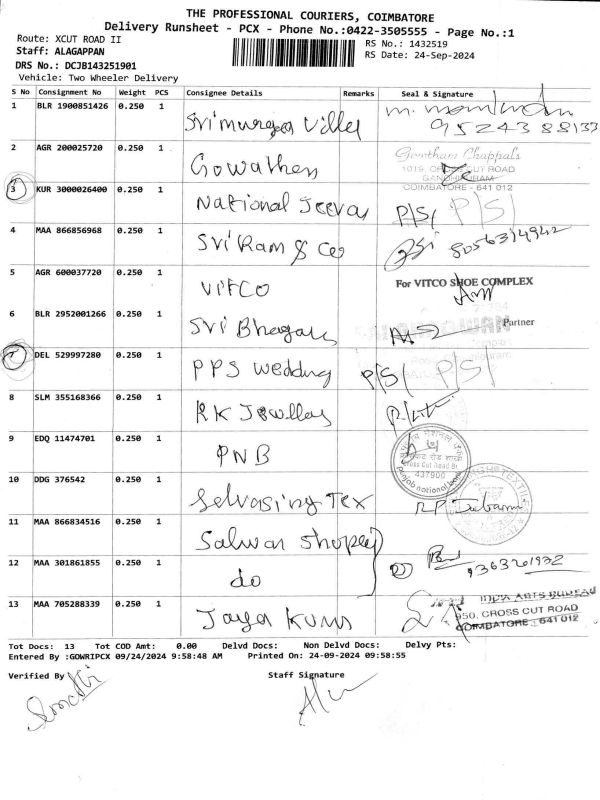 THE PROFESSIONAL COURIERS, COIMBATORE
Delivery Runsheet - PCX - Phone No.:0422-3505555 - Page No.:1
Route: XCUT ROAD II
RS No.: 1432519
Staff: ALAGAPPAN
RS Date: 24-Sep-2024
DRS No.: DCJB143251901
Vehicle: Two Wheeler Delivery
S No Consignment No Weight PCS Consignee Details Remarks Seal & Signature
1 BLR 1900851426 0.250 1 Srimurugan Villa
9524388133
2 AGR 200025720 0.250 1 Gowathen
Gowtham Chappals
1019, CROSS CUT ROAD
GANDHIPURAM
COIMBATORE - 641 012
3 KUR 3000026400 0.250 1 National Jeeva P/S/ P/S/
4 MAA 866856968 0.250 1 Sri Ram & Co 8056314942
5 AGR 600037720 0.250 1 VITCO
For VITCO SHOE COMPLEX
Partner
6 BLR 2952001266 0.250 1 Sri Bhagav
7 DEL 529997280 0.250 1 PPS Wedding P/S/ P/S/
8 SLM 355168366 0.250 1 RK Jewllay
9 EDQ 11474701 0.250 1 PNB
Cross Cut Road Br.
437900
punjab national bank
10 DDG 376542 0.250 1 Selvasing Tex
11 MAA 866834516 0.250 1 Salwar Shopee
12 MAA 301861855 0.250 1 do 9363261932
13 MAA 705288339 0.250 1 Jaya Kums
INDIA ARTS BUREAU
950, CROSS CUT ROAD
COIMBATORE - 641 012
Tot Docs: 13 Tot COD Amt: 0.00 Delvd Docs: Non Delvd Docs: Delvy Pts:
Entered By :GOWRIPCX 09/24/2024 9:58:48 AM Printed On: 24-09-2024 09:58:55
Verified By Staff Signature